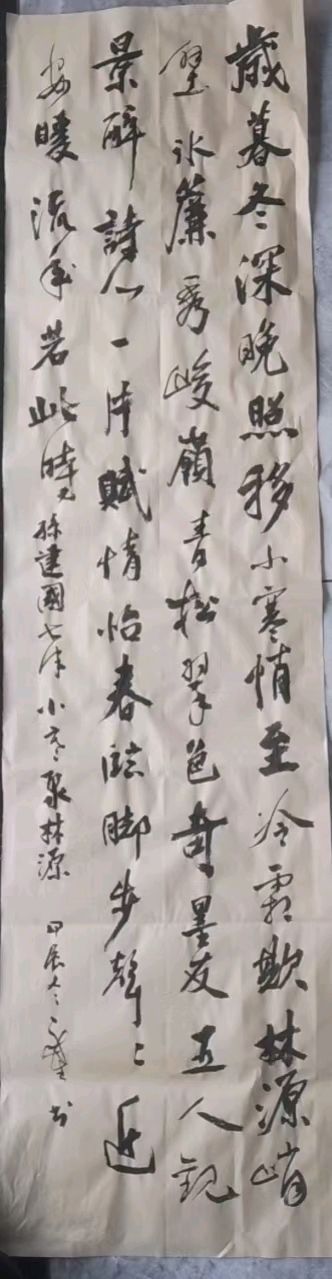 歲暮冬深晚照移小寒悄至冷霜欺林源峭
壁冰簾秀峻嶺青松翠色奇墨友五人觀
景醉詩心一片賦情怡春臨腳步聲〻近
安暖流年若此時 孫建國七律小寒聚林源 甲辰冬 書